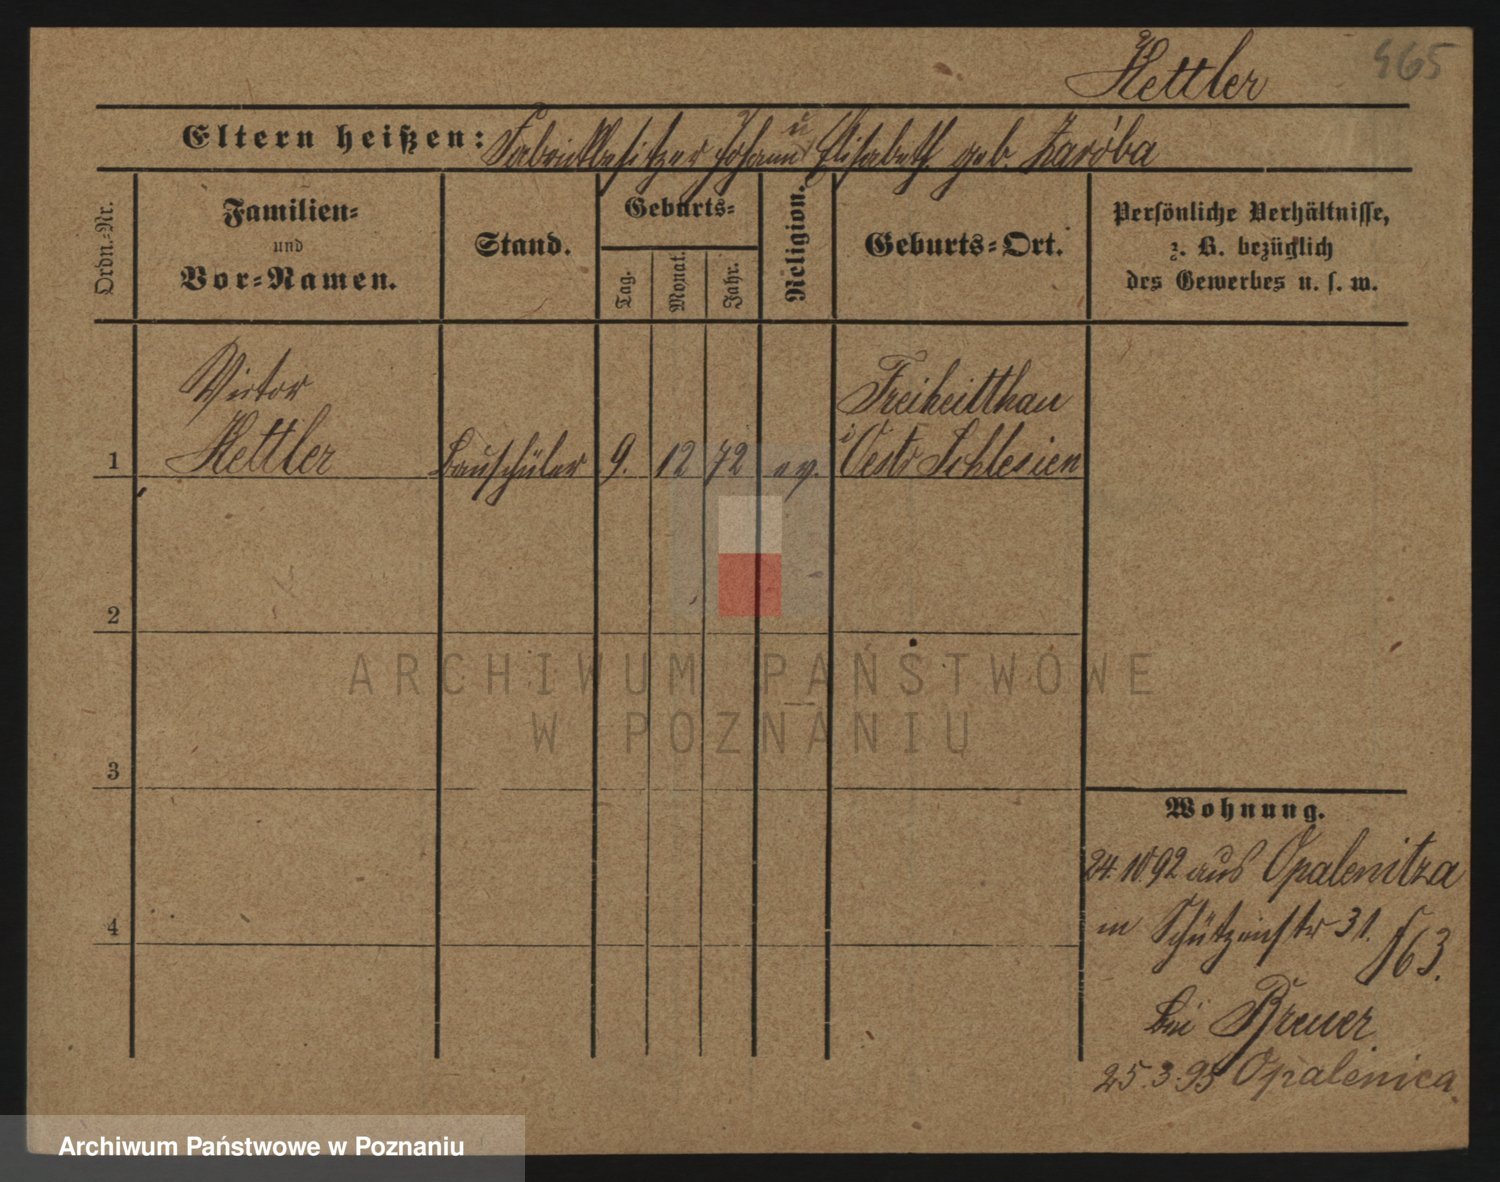 Kettler
465
Eltern heißen: Fabrikbesitzer Johann u Elisabeth geb. Zaróba
Ordn.-Nr.
Familien- und Vor-Namen.
Stand.
Geburts-
Tag.
Monat.
Jahr.
Religion.
Geburts-Ort.
Persönliche Verhältnisse,
z. B. bezüglich
des Gewerbes u. s. w.
Victor
Freiheitthau
1 Kettler Bauschüler 9. 12 72 ev. i Oestr Schlesien
2
ARCHIWUM PAŃSTWOWE
W POZNANIU
3
Wohnung.
24.10 92 aus Opalenitza
in Schützenstr 31.
163.
4
bei Breuer
25.3.95 Opalenica
Archiwum Państwowe w Poznaniu